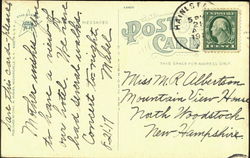 Save the card please
MESSAGES
Mother wishes
to have a view of
our hotel. We have
had several walks.
Concert to-night.
Mabel
6-21-'17
POST CARD
THIS SPACE FOR ADDRESS ONLY
Miss M. R. Albertson
Mountain View House
North Woodstock
New Hampshire